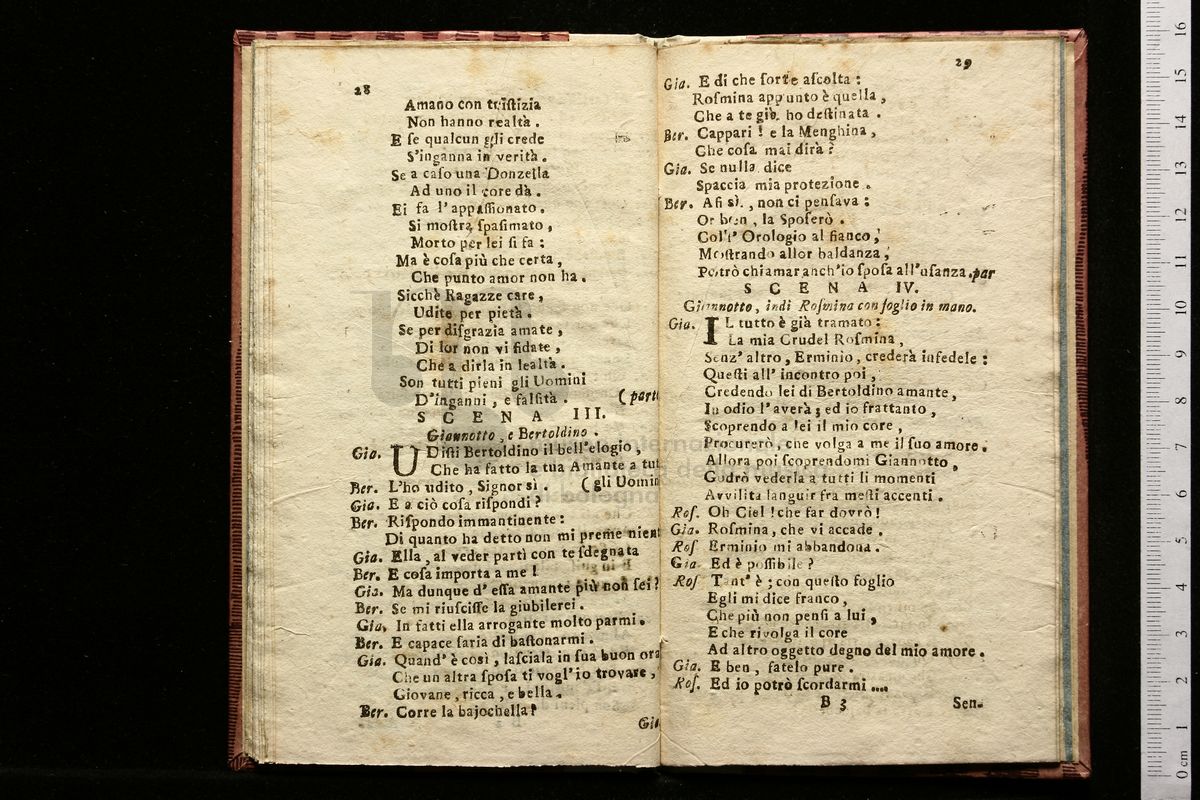 28
Amano con triſtizia
Non hanno realtà.
E ſe qualcun gli crede
S'inganna in verità.
Se a caſo una Donzella
Ad uno il core dà.
Ei fa l'appaſſionato,
Si moſtra ſpaſimato,
Morto per lei ſi fa:
Ma è coſa più che certa,
Che punto amor non ha.
Sicchè Ragazze care,
Udite per pietà.
Se per diſgrazia amate,
Di lor non vi fidate,
Che a dirla in lealtà.
Son tutti pieni gli Uomini
D'inganni, e falſità. (part
SCENA III.
Giannotto, e Bertoldino.
Gia. UDiſti Bertoldino il bell'elogio,
Che ha fatto la tua Amante a tut
Ber. L'ho udito, Signor sì. (gli Uomin
Gia. E a ciò coſa riſpondi?
Ber. Riſpondo immantinente:
Di quanto ha detto non mi preme nient
Gia. Ella, al veder partì con te ſdegnata
Ber. E coſa importa a me!
Gia. Ma dunque d'eſſa amante più non ſei?
Ber. Se mi riuſciſſe la giubilerei.
Gia. In fatti ella arrogante molto parmi.
Ber. E capace ſaria di baſtonarmi.
Gia. Quand'è così, laſciala in ſua buon ora
Che un altra ſpoſa ti vogl'io trovare,
Giovane, ricca, e bella.
Ber. Corre la bajochella?
Gia
29
Gia. E di che ſorte aſcolta:
Roſmina appunto è quella,
Che a te già ho deſtinata.
Ber. Cappari! e la Menghina,
Che coſa mai dirà?
Gia. Se nulla dice
Spaccia mia protezione.
Ber. Aſi sì, non ci penſava:
Or ben, la Spoſerò.
Coll' Orologio al fianco,
Moſtrando allor baldanza,
Potrò chiamar anch'io ſpoſa all'uſanza. par
SCENA IV.
Giannotto, indi Roſmina con foglio in mano.
Gia. IL tutto è già tramato:
La mia Crudel Roſmina,
Senz'altro, Erminio, crederà infedele:
Queſti all'incontro poi,
Credendo lei di Bertoldino amante,
In odio l'averà; ed io frattanto,
Scoprendo a lei il mio core,
Procurerò, che volga a me il ſuo amore.
Allora poi ſcoprendomi Giannotto,
Godrò vederla a tutti li momenti
Avvilita languir fra meſti accenti.
Roſ. Oh Ciel! che far dovrò!
Gia. Roſmina, che vi accade.
Roſ Erminio mi abbandona.
Gia Ed è poſſibile?
Roſ Tant'è; con queſto foglio
Egli mi dice franco,
Che più non penſi a lui,
E che rivolga il core
Ad altro oggetto degno del mio amore.
Gia. E ben, fatelo pure.
Roſ. Ed io potrò ſcordarmi....
B 3 Sen-
0 cm 1 2 3 4 5 6 7 8 9 10 11 12 13 14 15 16